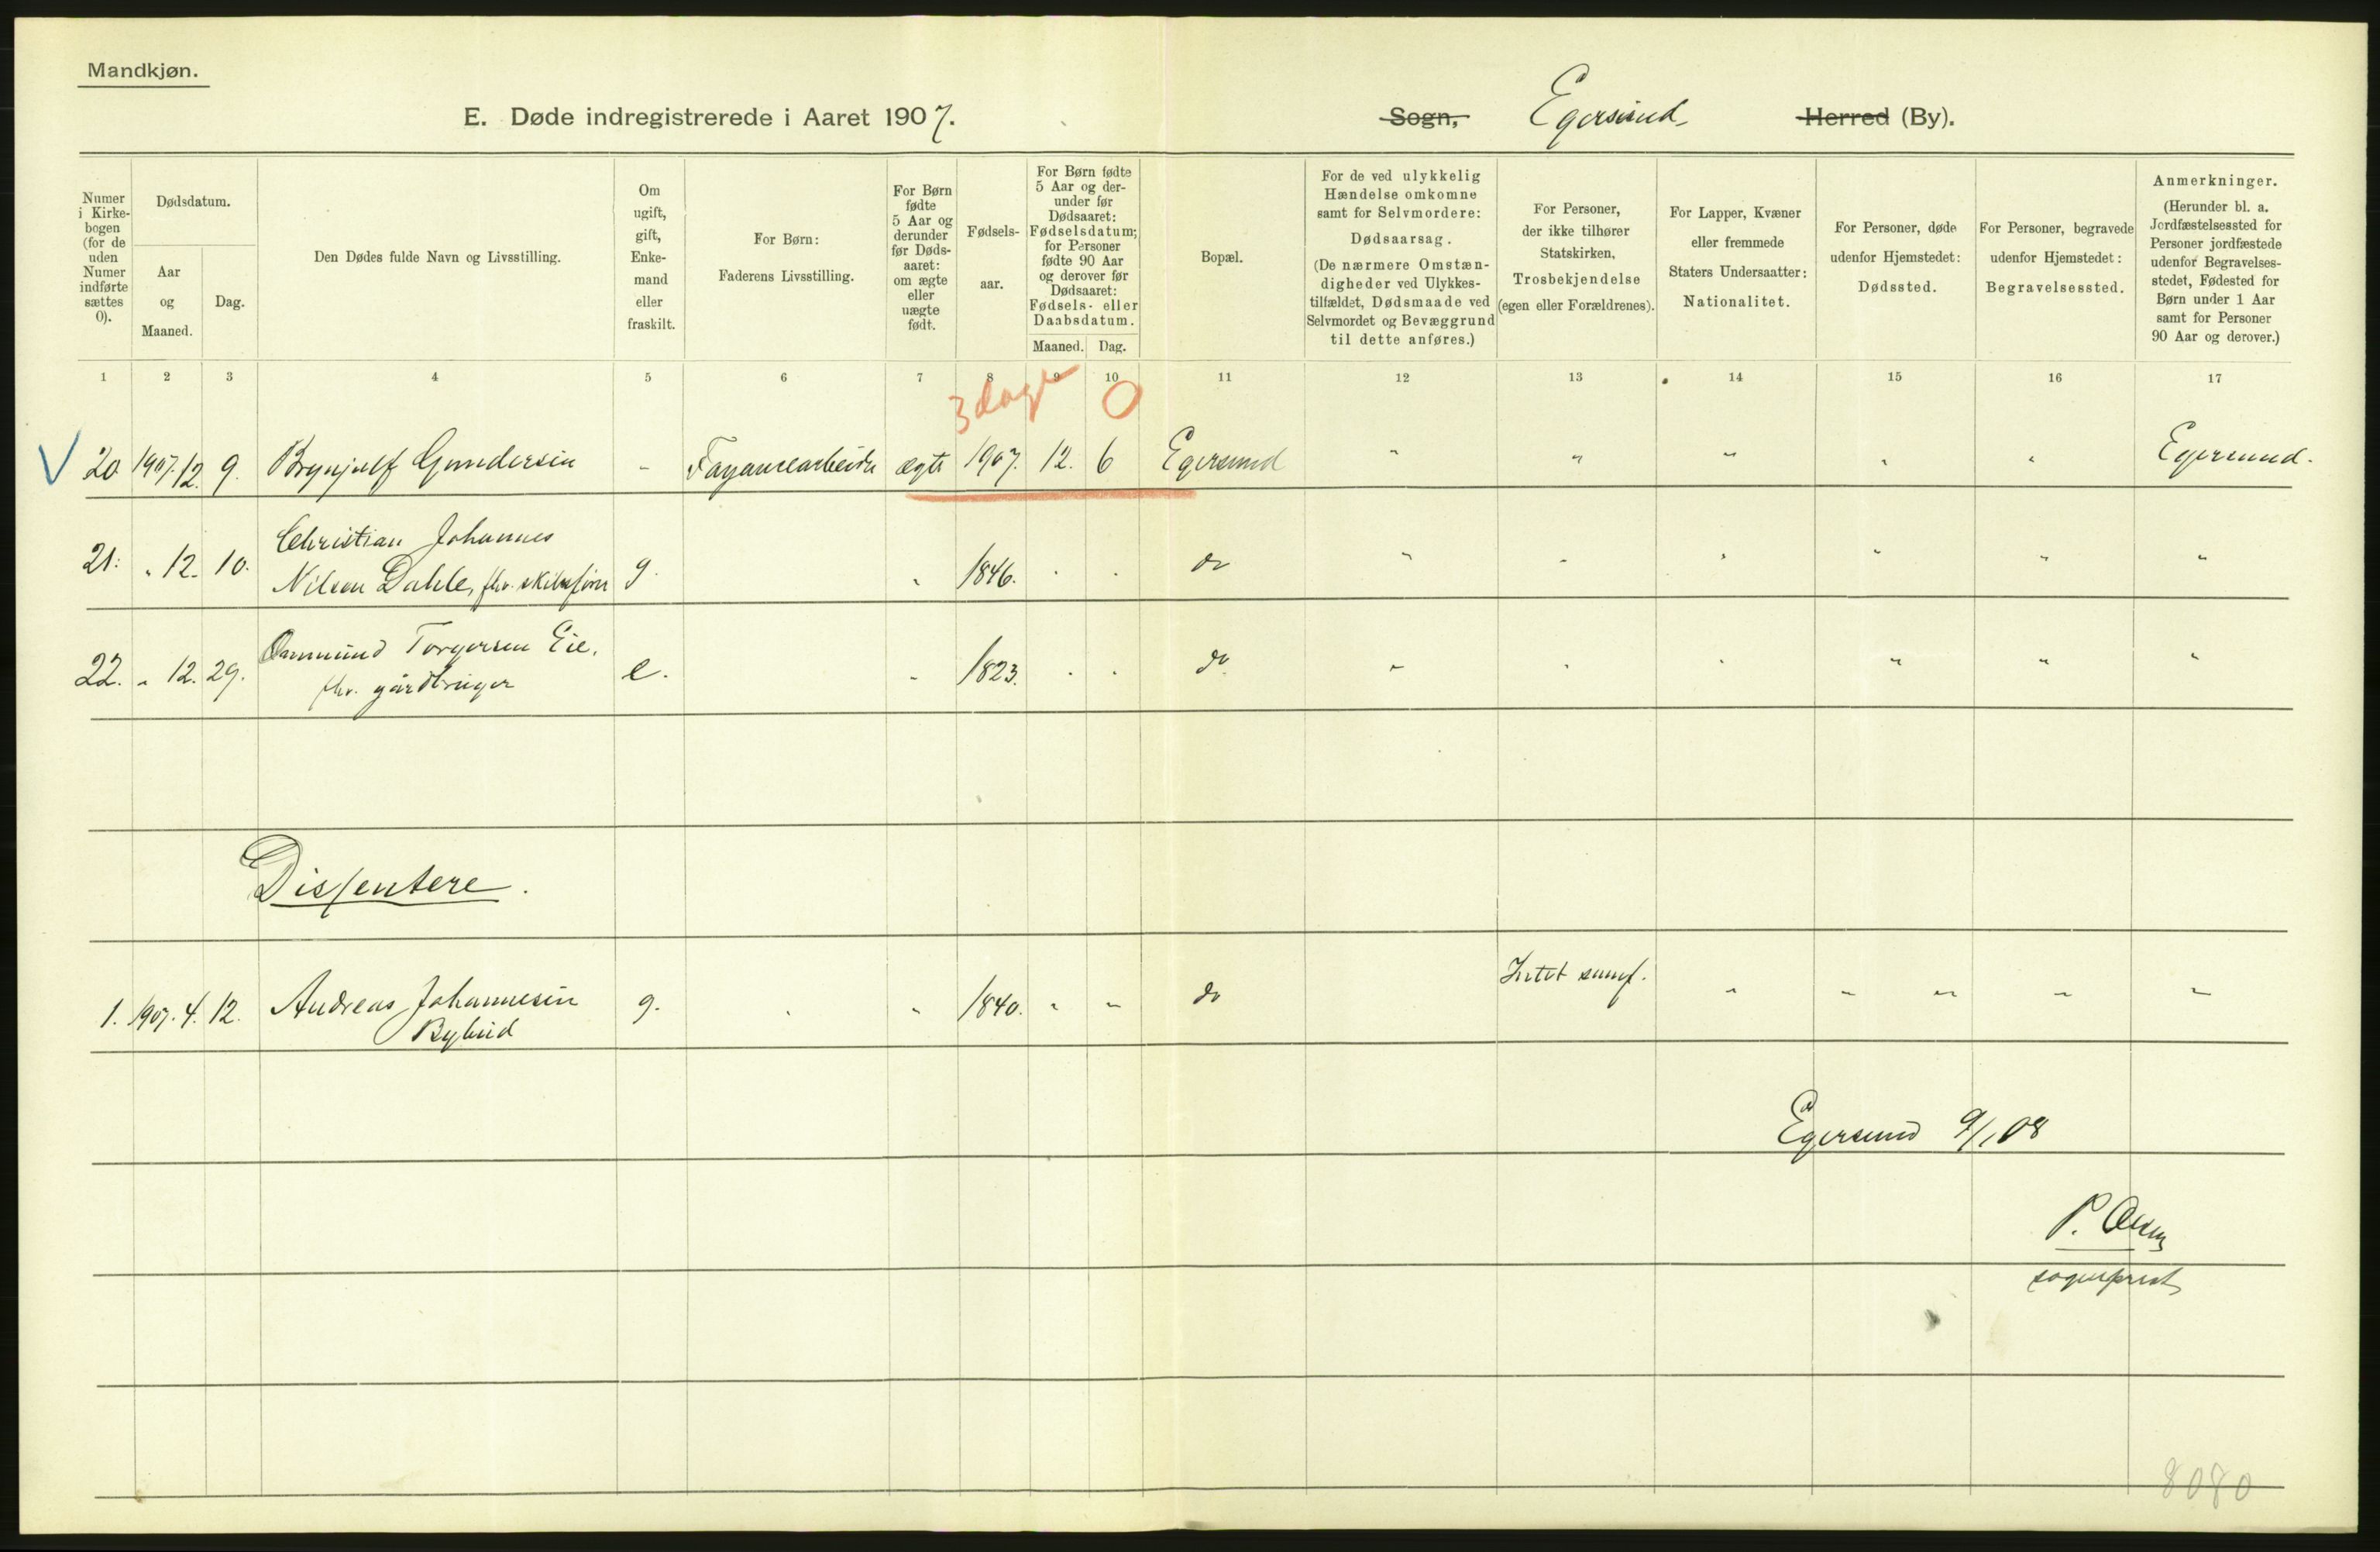 Mandkjøn.
E. Døde indregistrerede i Aaret 1907.
Sogn, Egersund Herred (By).
Numer i Kirkebogen (for de uden Numer indførte sættes 0).
Dødsdatum.
Aar og Maaned.
Dag.
Den Dødes fulde Navn og Livsstilling.
Om ugift, gift, Enkemand eller fraskilt.
For Børn: Faderens Livsstilling.
For Børn fødte 5 Aar og derunder før Dødsaaret: om ægte eller uægte født.
Fødselsaar.
For Børn fødte 5 Aar og derunder før Dødsaaret: Fødselsdatum; for Personer fødte 90 Aar og derover før Dødsaaret: Fødsels- eller Daabsdatum.
Maaned. Dag.
Bopæl.
For de ved ulykkelig Hændelse omkomne samt for Selvmordere: Dødsaarsag. (De nærmere Omstændigheder ved Ulykkestilfældet, Dødsmaade ved Selvmordet og Bevæggrund til dette anføres.)
For Personer, der ikke tilhører Statskirken, Trosbekjendelse (egen eller Forældrenes).
For Lapper, Kvæner eller fremmede Staters Undersaatter: Nationalitet.
For Personer, døde udenfor Hjemstedet: Dødssted.
For Personer, begravede udenfor Hjemstedet: Begravelsessted.
Anmerkninger. (Herunder bl. a. Jordfæstelsessted for Personer jordfæstede udenfor Begravelsesstedet, Fødested for Børn under 1 Aar samt for Personer 90 Aar og derover.)
1 2 3 4 5 6 7 8 9 10 11 12 13 14 15 16 17
3 dage 0
V 20 1907. 12. 9. Brynjulf Gundersen - Fayancearbeider ægte 1907. 12. 6 Egersund " " " " " Egersund.
Christian Johannes
21. " 12. 10. Nilsen Dahle, fhv. skibsfører g. " 1846. " " do " " " " " "
Ommund Torgersen Eie,
22. " 12. 29. fhv. gårdbruger e. " 1823. " " do " " " " " "
Dissentere.
1. 1907. 4. 12. Andreas Johannesen g. " " 1840. " " do Intet samf. " " " " "
Bybud
Egersund 9/1 08
P. Olsen
sogneprest
8080